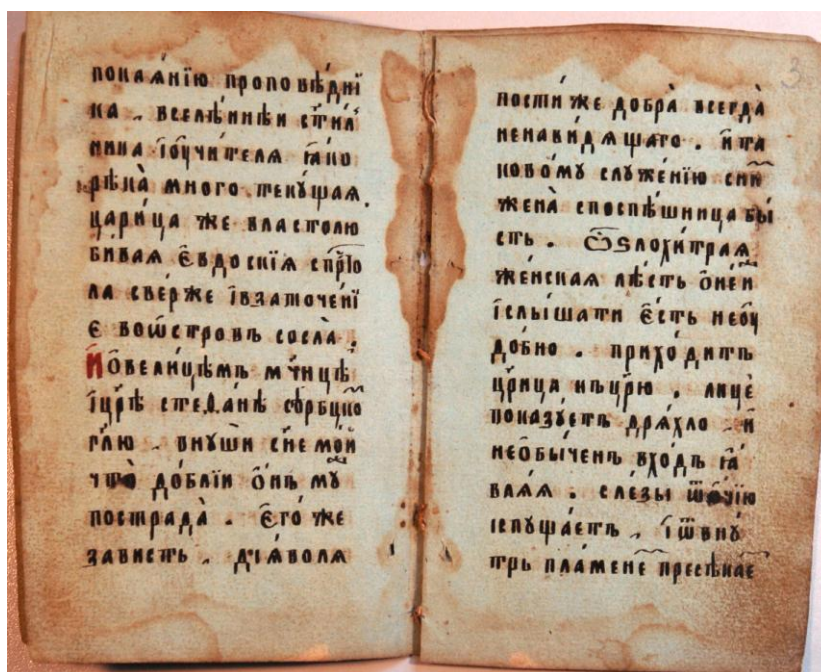 покаѧ́нїю проповѣ́днї
ка . вселе́ннѣи ст҃ил
ника і҆ѹчи́телѧ ꙗ҆́ко
рѣка̀ много текꙋ́щаѧ
цари́ца же властолю
би́ваѧ є҆ѵдоскі́ѧ спр҇то
ла све́рже і҆взаточе́нї
є во́ѡстровъ сосла̀ .
И҆ѻ҆вели́цѣмъ мч҃ницѣ
і҆цр҃ѣ сте.ѳ.а́нѣ се́рбцко
гл҃ю . внꙋши сн҃е мо́й
что̀ до́блїи ѻ҆́нъ мꙋ
пострада̀ . є҆го́ же
зависть . дїѧ́волѧ
3
пости́ же добра̀ всегда̀
ненави́дѧщаго . и҆та
ково́мꙋ слꙋже́нїю сїи
жена̀ споспѣ́шница бы́
сть . Ѿѕлохи́траѧ
же́нскаѧ ле́сть ѻ҆́неи
і҆слы́шати є҆́сть неѹ
до́бно . прихо́дитъ
цр҃и́ца къцр҃ю . лицѐ
показꙋ́етъ дрѧ́хло . и҆
неѻбы́ченъ вхо́дъ ꙗ҆
влѧ́ѧ . сле́зы ѿѻчїю
іспꙋща́етъ . і҆ѿвнꙋ́
трь пла́мене пресѣкае